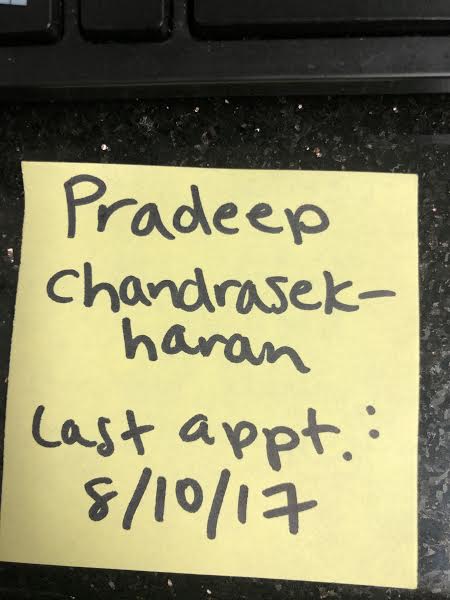 Pradeep
Chandrasek-
haran
Last appt.:
8/10/17